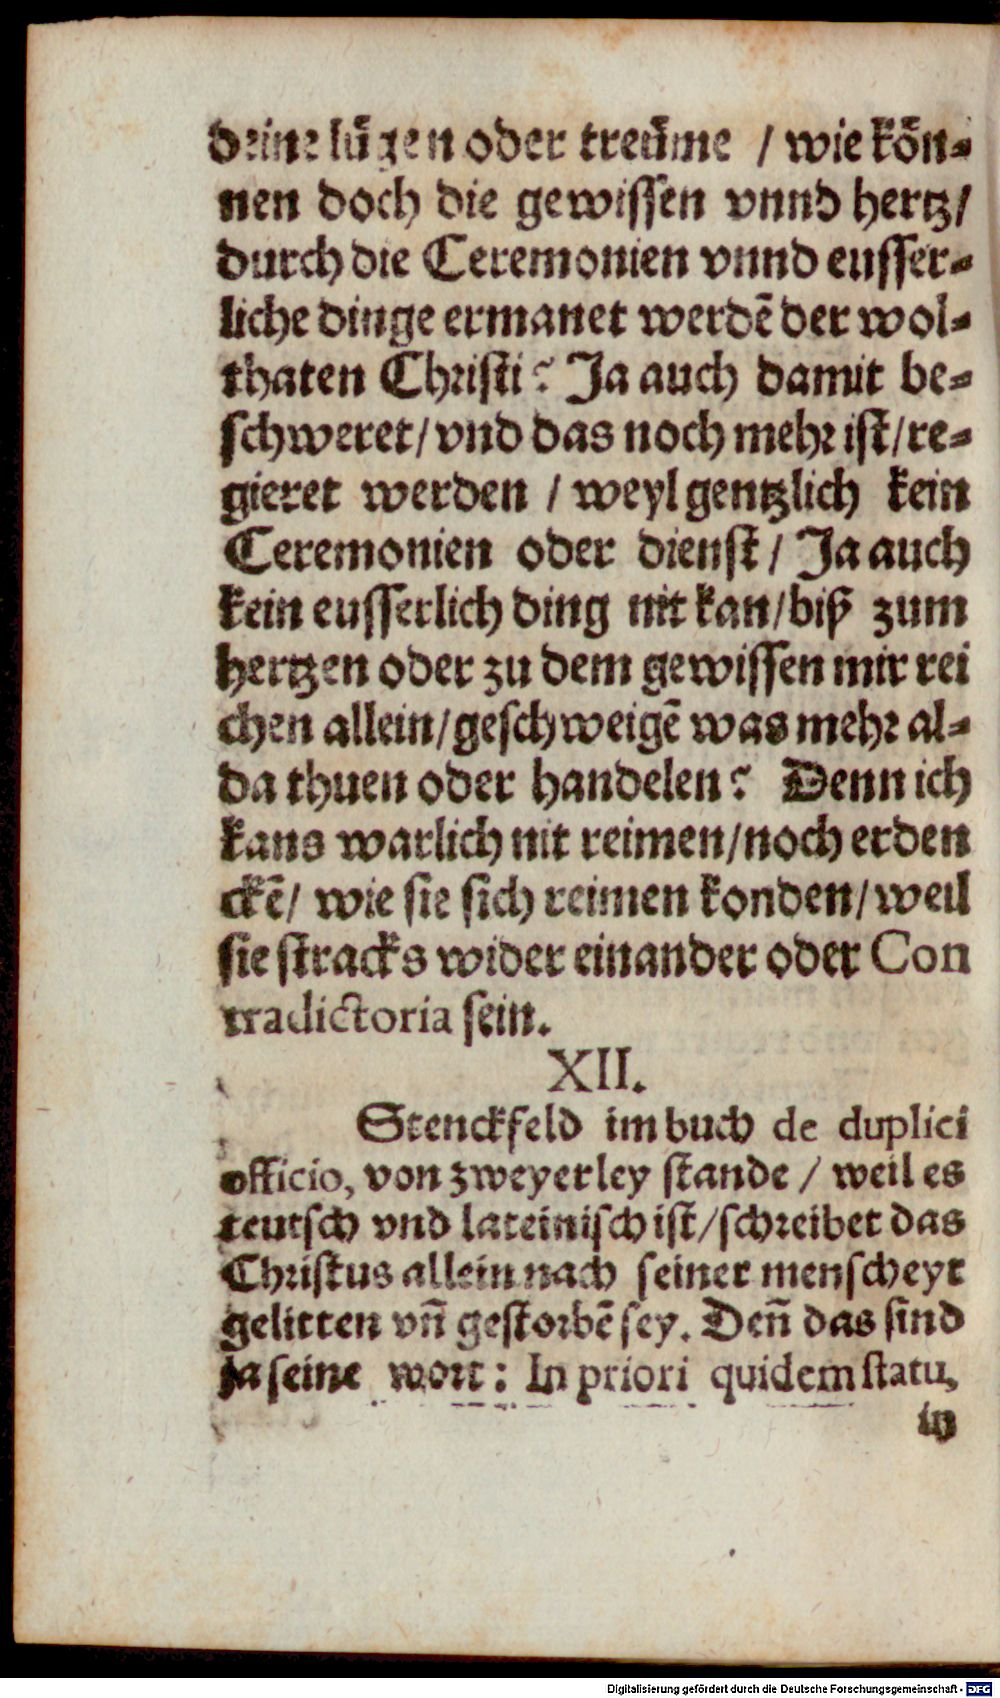 deine lügen oder treüme / wie kön⸗
nen doch die gewissen vnnd hertz/
durch die Ceremonien vnnd eusser⸗
liche dinge ermanet werdē der wol⸗
thaten Christi? Ja auch damit be⸗
schweret/vnd das noch mehr ist/re⸗
gieret werden / weyl gentzlich kein
Ceremonien oder dienst/ Ja auch
kein eusserlich ding nit kan/biß zum
hertzen oder zu dem gewissen mir rei
chen allein/geschweigē was mehr al⸗
da thuen oder handelen? Denn ich
kans warlich nit reimen/noch erden
ckē/ wie sie sich reimen konden/weil
sie stracks wider einander oder Con
tradictoria sein.
XII.
Stenckfeld im buch de duplici
officio, von zweyerley stande / weil es
teutsch vnd lateinisch ist/schreibet das
Christus allein nach seiner menscheyt
gelitten vñ gestorbē sey. Deñ das sind
ja seine wort: In priori quidem statu,
in
Digitalisierung gefördert durch die Deutsche Forschungsgemeinschaft - DFG